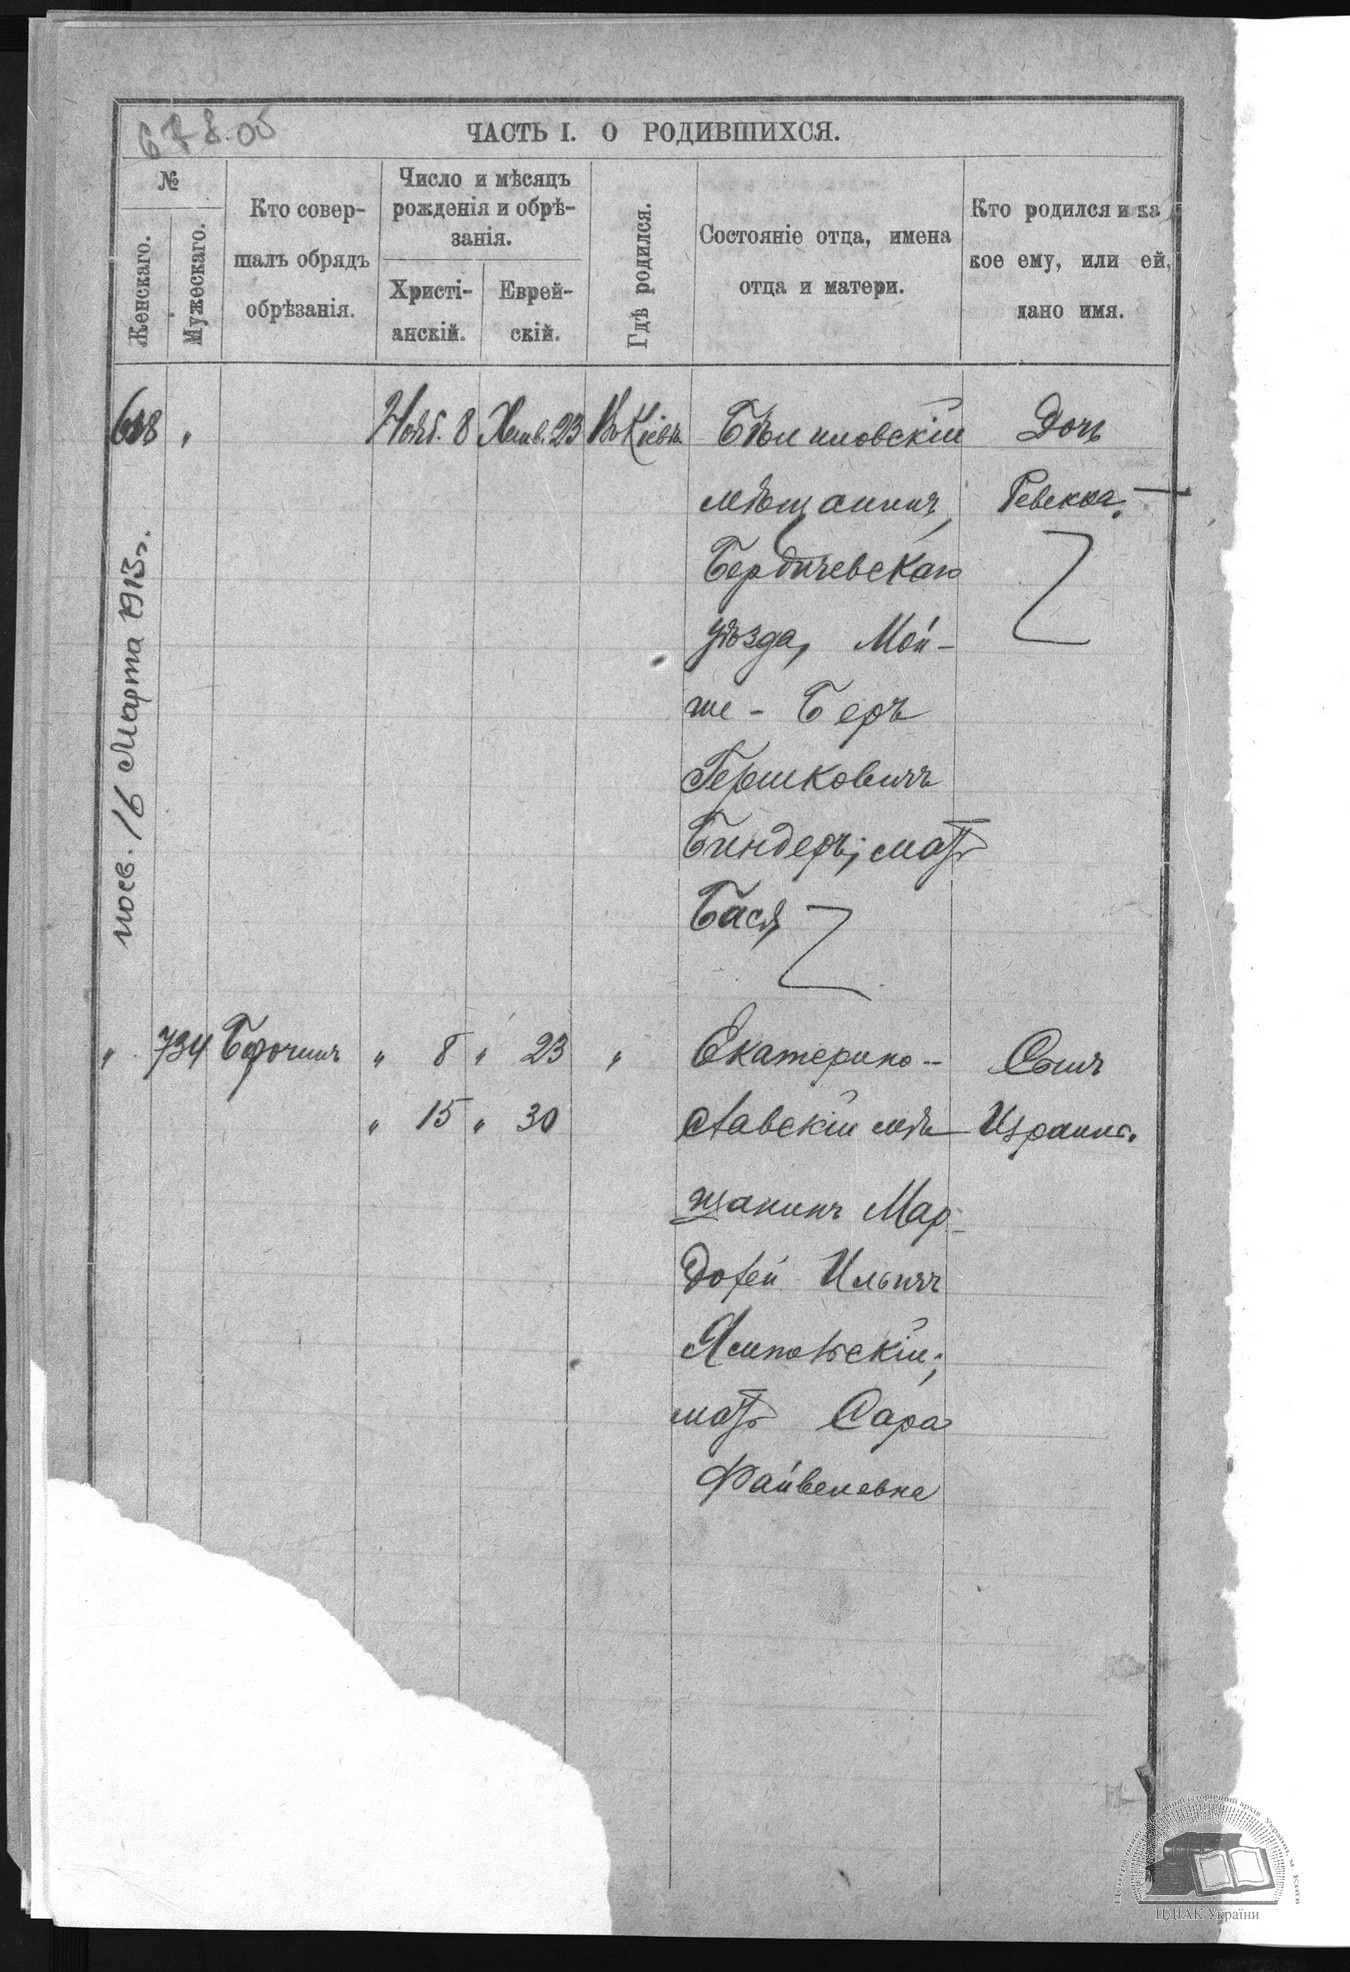 678.об
ЧАСТЬ I. О РОДИВШИХСЯ.
№
Женскаго.
Мужескаго.
Кто совер-
шалъ обрядъ
обрѣзанія.
Число и мѣсяцъ
рожденія и обрѣ-
занія.
Христі-
анскій.
Еврей-
скій.
Гдѣ родился.
Состояніе отца, имена
отца и матери.
Кто родился и ка
кое ему, или ей,
дано имя.
" Нояб. 8 23 Въ Кіевѣ
Бѣлиловскій
мѣщанинъ,
Бердичевскаго
уѣзда, Мой-
ше - Беръ
Гершковичъ
Биндеръ; мать
Бася
Дочь
Ревекка.
16 Марта 1913 г.
" 734 " 8 " 23 "
" 15 " 30
Екатерино-
славскій мѣ-
щанинъ Мар-
дохей Ильичъ
Ямпольскій;
мать Сара
Файвелевна
Сынъ
Израиль.
ЦДІАК України